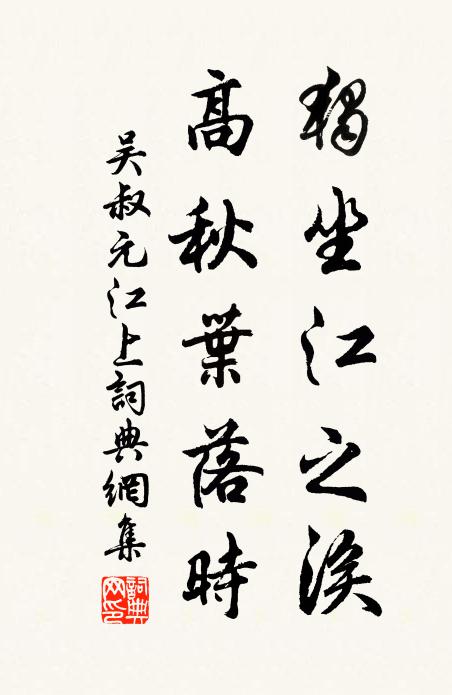 獨坐江之涘
高秋葉落時
吴叔元江上詞典網集
詞典网印